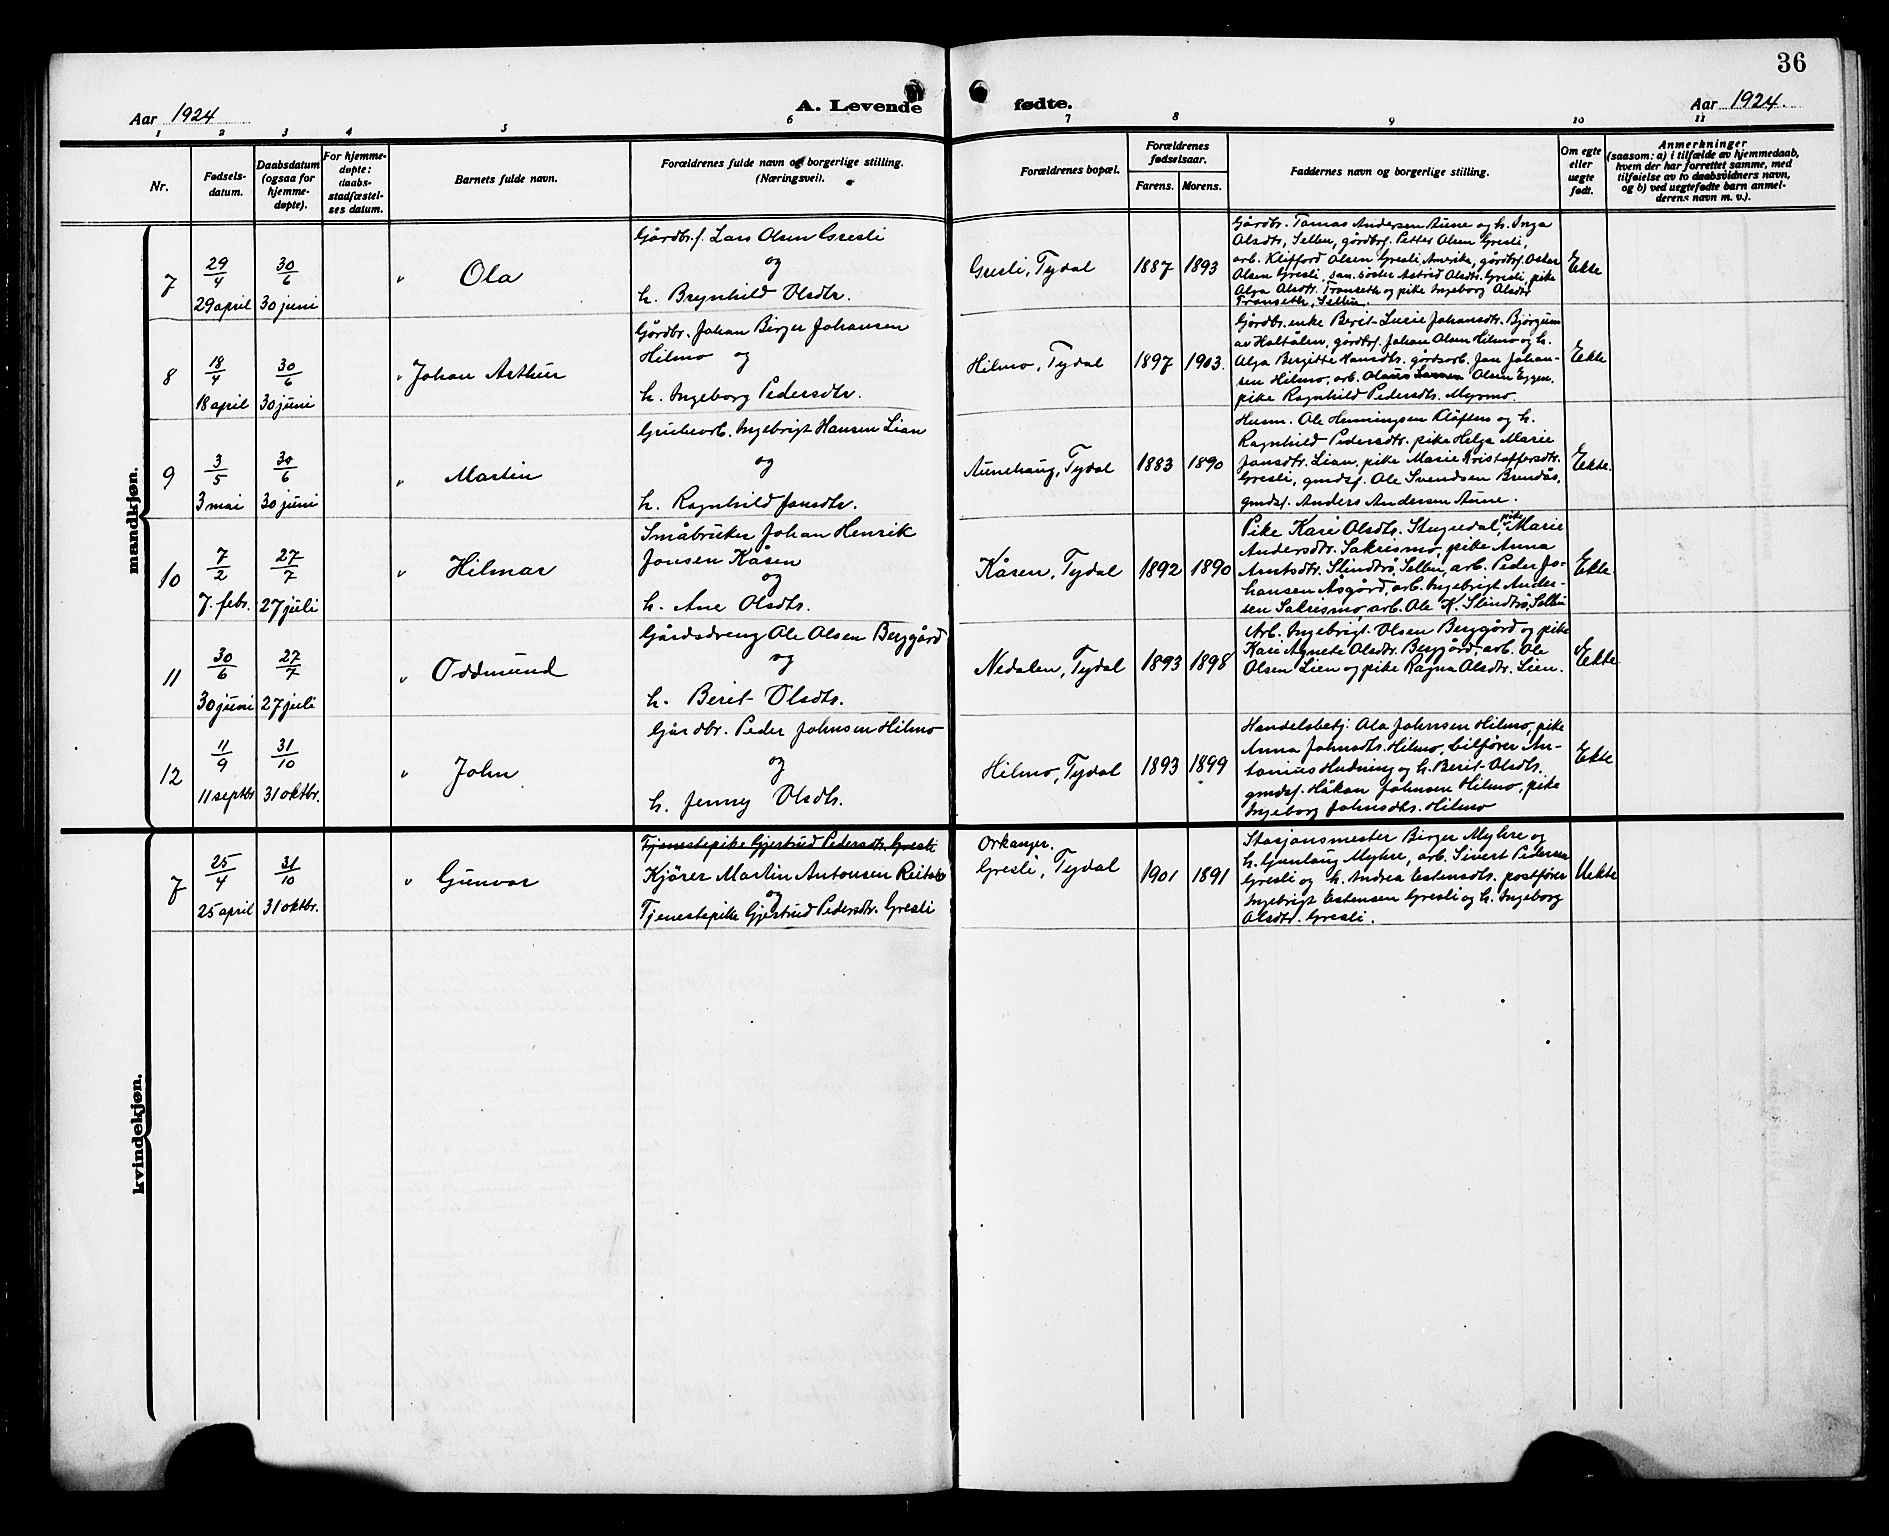 36
Aar 1924
A. Levende fødte.
Aar 1924.
1 2 3 4 5 6 7 8 9 10 11
Nr.
Fødsels-
datum.
Daabsdatum
(ogsaa for
hjemme-
døpte).
For hjemme-
døpte:
daabs-
stadfæstel-
ses datum.
Barnets fulde navn.
Forældrenes fulde navn og borgerlige stilling.
(Næringsvei).
Forældrenes bopæl.
Forældrenes
fødselsaar.
Farens. Morens.
Faddernes navn og borgerlige stilling.
Om egte
eller
uegte
født.
Anmerkninger
(saasom: a) i tilfælde av hjemmedaab,
hvem der har forrettet samme, med
tilføielse av to daabsvidners navn,
og b) ved uegtefødte barn anmel-
derens navn m. v.).
mandkjøn.
7
29/4
29 april
30/6
30 juni
" Ola
Gårdbr.f. Lars Olsen Gresli
og
h. Brynhild Olsdtr.
Gresli, Tydal
1887 1893
Gårdbr. Tomas Andersen Aune og h. Inga
Olsdtr, Selbu, gårdbrf. Petter Olsen Gresli,
arb. Klifford Olsen Gresli, Amerika, gårdbrf. Oskar
Olsen Gresli, søster Astrid Olsdtr. Gresli, pike
Olga Olsdtr. Franseth og pike Ingeborg Olsdtr
Franseth, Selbu.
Ekte
8
18/4
18 april
30/6
30 juni
" Johan Arthur
Gårdbr. Johan Birger Johansen
Hilmo og
h. Ingeborg Pedersdtr.
Hilmo, Tydal
1897 1903.
Gårdbr. enke Berit Lusie Johansdtr. Bjørgum
av Haltålen, gårdbrf. Johan Olsen Hilmo og h.
Olga Bergitte Hansdtr. gårdsarb. Jon Johan-
sen Hilmo, arb. Olaus Olsen Eggen,
pike Ragnhild Pedersdtr. Myrmo.
Ekte
9
3/5
3 mai
30/6
30 juni
" Martin
Grubearb. Ingebrigt Hansen Lian
og
h. Ragnhild Jonsdtr.
Aunehaug, Tydal
1883 1890
Husm. Ole Henningsen Kløften og h.
Ragnhild Pedersdtr. pike Helga Marie
Jonsdtr. Lian, pike Marie Kristoffersdtr.
Gresli, gmdsf. Ole Svendsen Brendås,
gmdsf. Anders Andersen Aune.
Ekte.
10
7/2
7. febr.
27/7
27 juli
" Hilmar
Småbruker Johan Henrik
Jonsen Kåsen
og
h. Ane Olsdtr.
Kåsen, Tydal
1892 1890
Pike Kari Olsdtr. Stugudal, pike Marie
Andersdtr. Sakrismo, pike Anna
Arntsdtr. Slindtrø, Selbu, arb. Peder Jo-
hansen Åsgård, arb. Ingebrigt Ander-
sen Sakrismo, arb. Ole K. Slindtrø, Selbu
Ekte.
11
30/6
30 juni
27/7
27 juli
" Oddmund
Gårdsdreng Ole Olsen Berggård
og
h. Berit Olsdtr.
Nedalen, Tydal
1893 1898
Arb. Ingebrigt Olsen Berggård og pike
Kari Agnete Olsdtr. Berggård, arb. Ole
Olsen Lien og pike Ragna Olsdtr. Lien.
Ekte
12
11/9
11 septbr
31/10
31 oktbr.
" John
Gårdbr. Peder Johnsen Hilmo
og
h. Jenny Olsdtr.
Hilmo, Tydal
1893 1899
Handelsbetj. Ola Johnsen Hilmo, pike
Anna Johnsdtr. Hilmo, bilfører An-
tonius Hudning og h. Berit Olsdtr.
gmdsf. Håkon Johnsen Hilmo, pike
Ingeborg Johnsdtr. Hilmo
Ekte
kvindekjøn.
7
25/4
25 april
31/10
31 oktbr.
" Gunvor
Tjenestepike Gjertrud Pedersdtr. Gresli
Kjører Martin Antonsen Reitås
og
Tjenestepike Gjertrud Pedersdtr. Gresli
Orkanger.
Gresli, Tydal
1901 1891
Stasjonsmester Birger Myhre og
h. Gunlaug Myhre, arb. Sivert Pedersen
Gresli og h. Andrea Estensdtr. postfører
Ingebrigt Estensen Gresli og h. Ingeborg
Olsdtr. Gresli.
Uekte